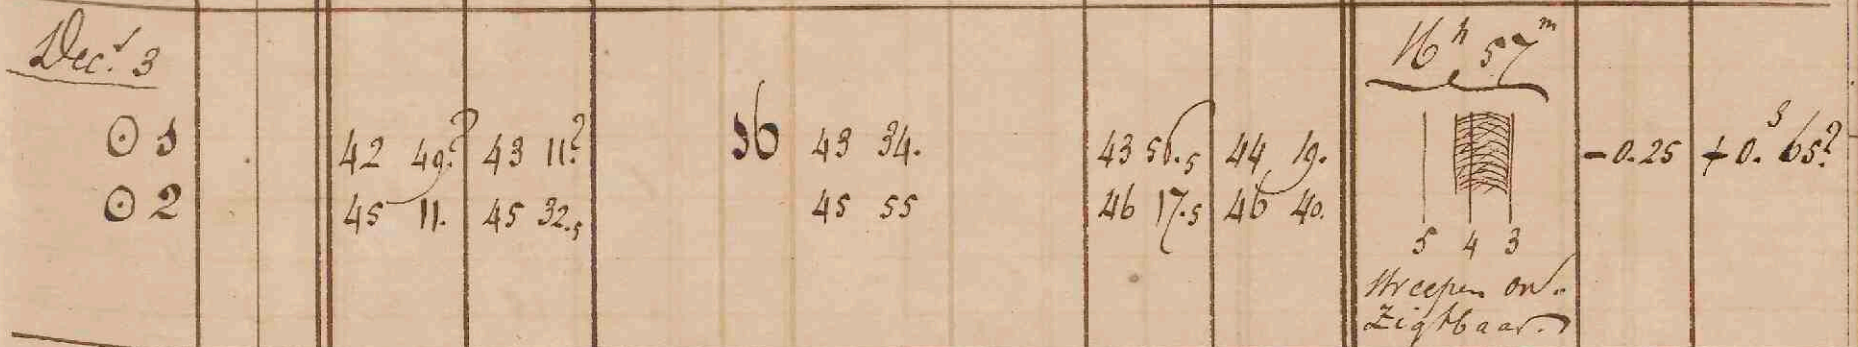 Dec.r 3
16h 57m
☉ 1 42 49.? 43 11.? 16 43 34. 43 56.5 44 19. -0.25 +0.s65?
☉ 2 45 11. 45 32.5 45 55 46 17.5 46 40.
5 4 3
Streepen on-
zigtbaar.